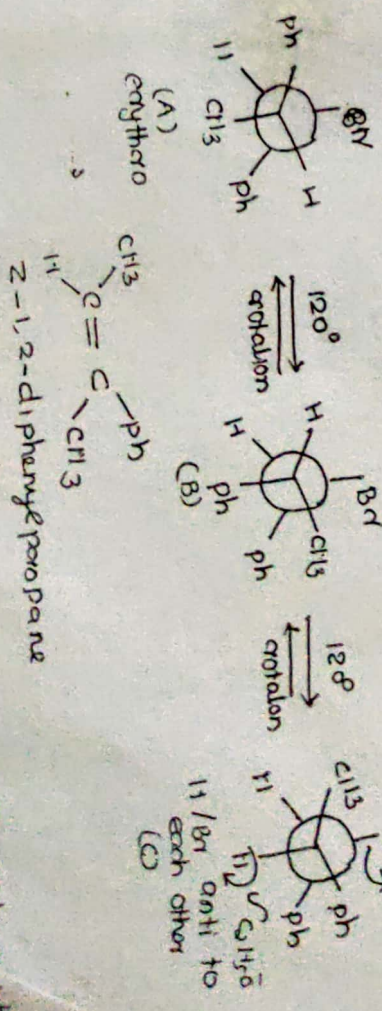 ph
BR
H
H
CH3
ph
(A)
erythro
120°
rotation
Br
H
H
CH3
ph
ph
(B)
120°
rotation
CH3
H
ph
ph
H
C2H5O
H/Br anti to
each other
(C)
CH3
ph
C = C
H
CH3
Z-1,2-diphenylpropane